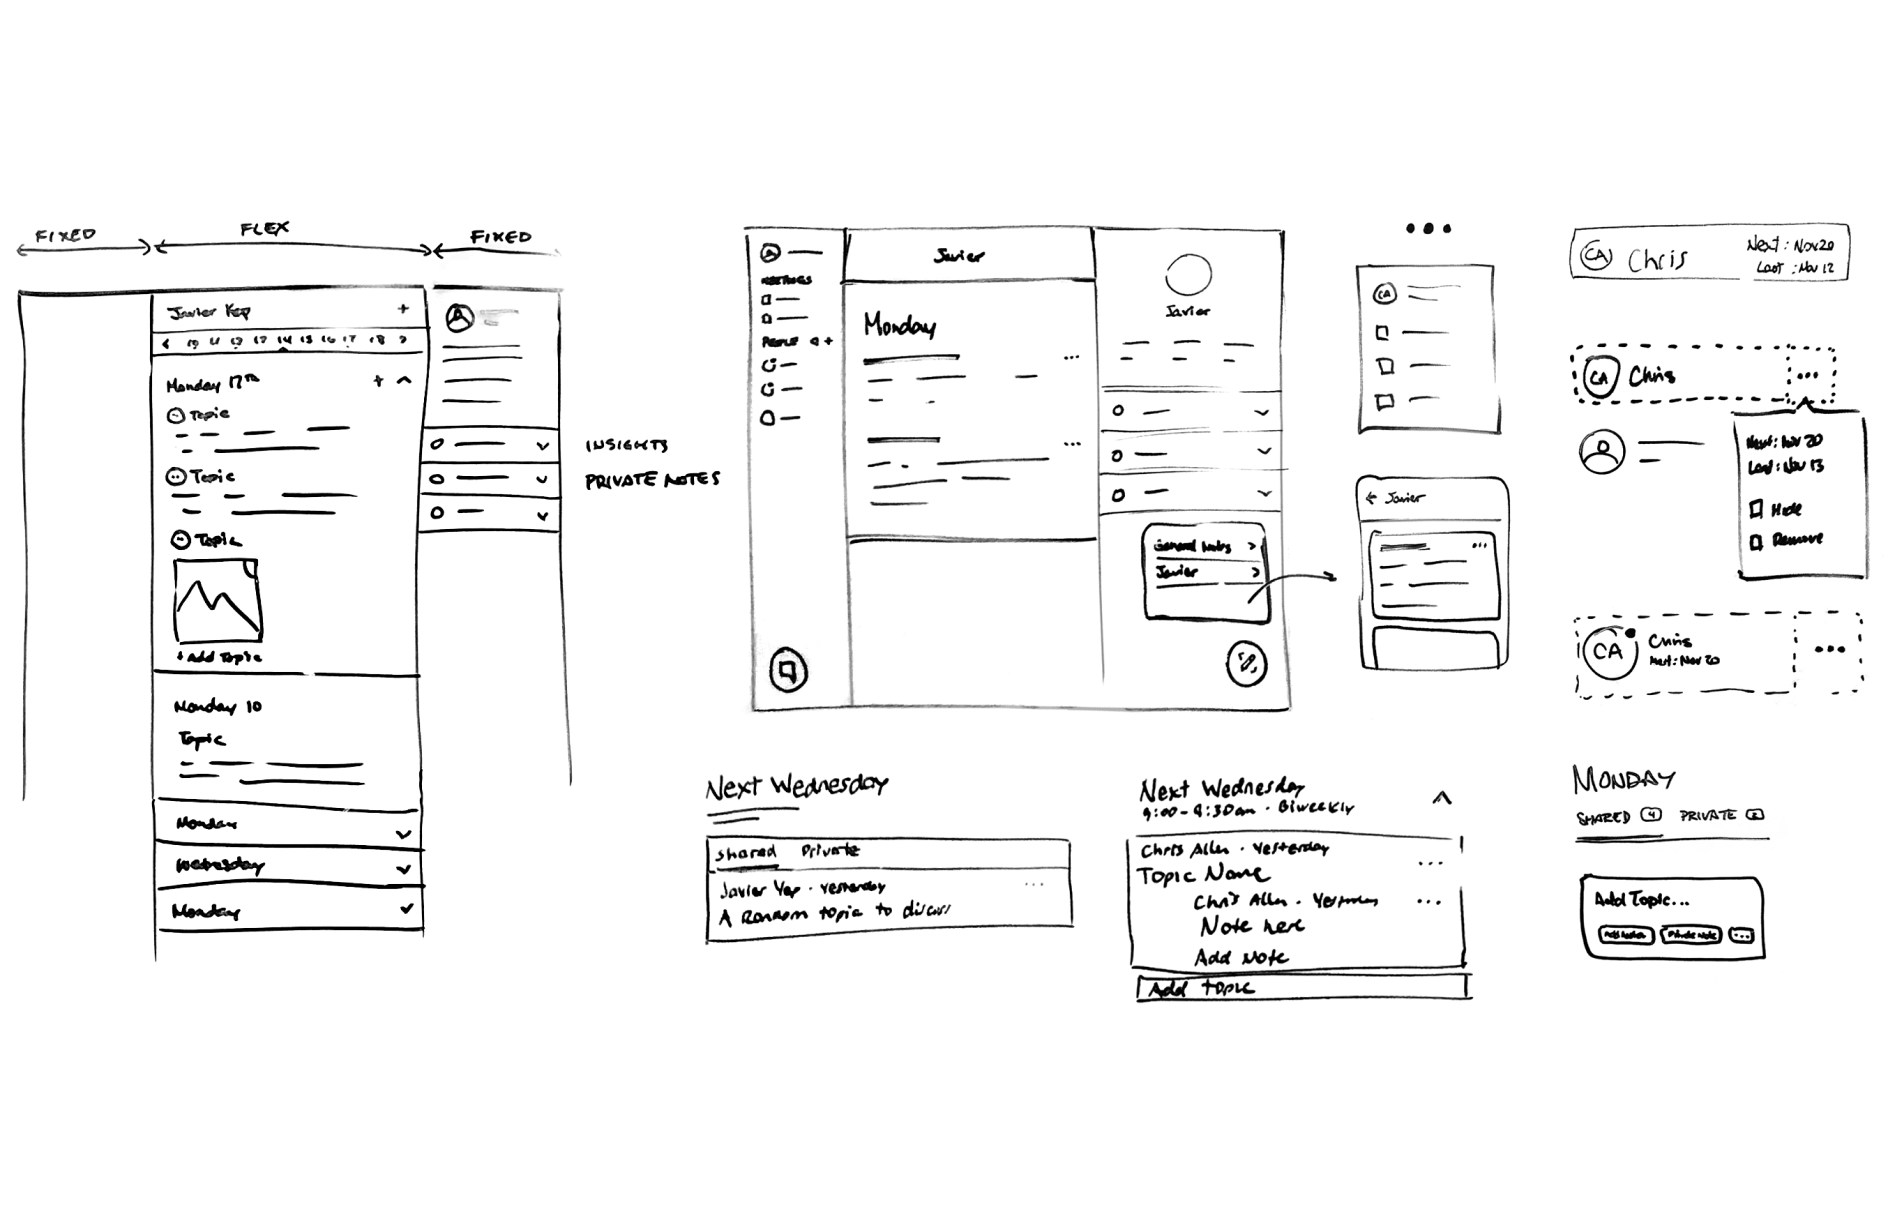 FIXED
FLEX
FIXED
Javier Yep +
Monday 17th + 
Topic
Topic
Topic
+ Add Topic
Monday 10
Topic
Monday
Wednesday
Monday
INSIGHTS
PRIVATE NOTES
MEETINGS
PEOPLE
Javier
Monday
Javier
General Notes >
Javier >
← Javier
CA
CA Chris
Next: Nov 20
Last: Nov 12
CA Chris ...
Next: Nov 20
Last: Nov 13
Hide
Remove
CA Chris
Next: Nov 20
...
Next Wednesday
Shared Private
Javier Yep · Yesterday ...
A Random topic to discuss
Next Wednesday
9:00-9:30am · Biweekly
Chris Allen · Yesterday
...
Topic Name
Chris Allen · Yesterday ...
Note here
Add Note
Add Topic
MONDAY
SHARED 4 PRIVATE
Add Topic...
Private Note ...